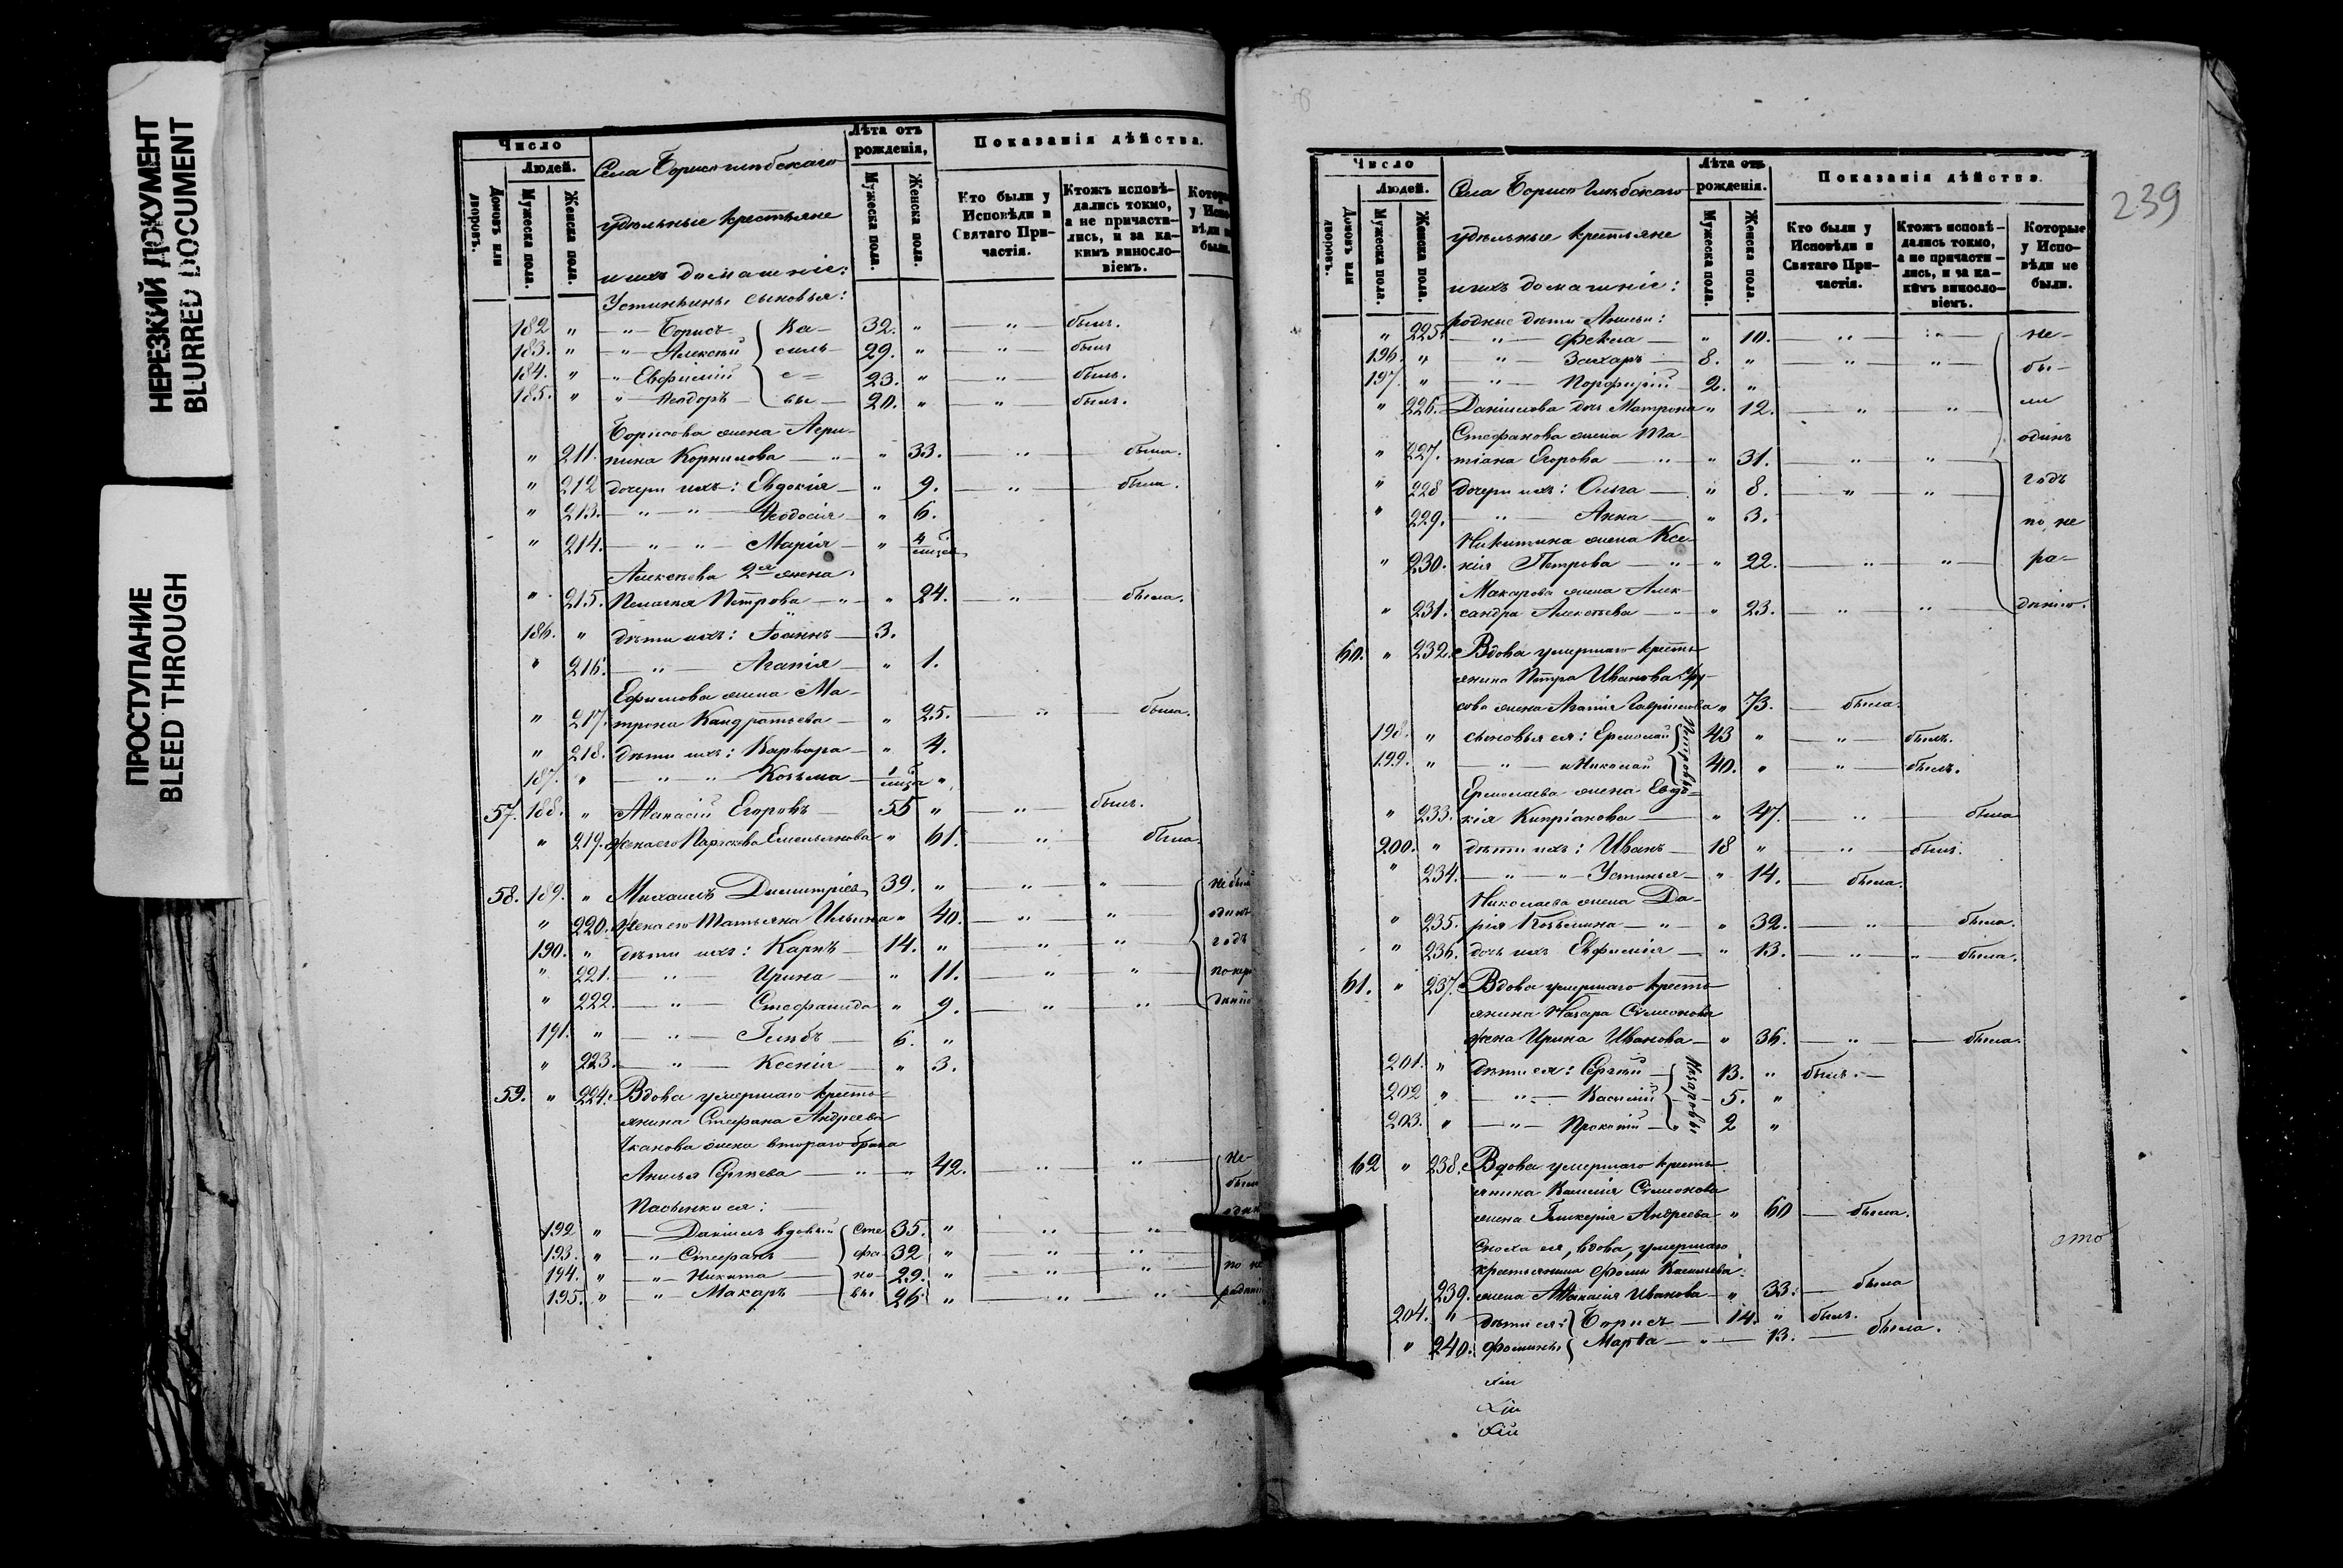 НЕРЕЗКИЙ ДОКУМЕНТ
BLURRED DOCUMENT
ПРОСТУПАНИЕ
BLEED THROUGH
Число
Людей.
Домовъ или дворовъ.
Мужеска пола.
Женска пола.
Села Борисоглѣбскаго
удѣльные крестьяне
и ихъ домашніе:
Лѣта отъ рожденія,
Мужеска пола.
Женска пола.
Показанія дѣйства.
Кто были у Исповѣди и Святаго Причастія.
Ктожъ исповѣдались токмо, а не причастились, и за какимъ винословіемъ.
Устиньины сыновья:
182 " — " — Борисъ { Ва— 32. " — " — былъ.
183. " — " — Алексѣй силь— 29. " — " — былъ
184. " " Евфимій е = 23. " — " — былъ.
185. " " — Ѳеодоръ — вы — 20. " — " — былъ.
Борисова жена Агри-
" 211. пина Корнилова — " — " 33. — " — была.
" 212 дочери ихъ: Евдокія — " 9. — " — была.
" 213. — " — " — Ѳеодосія — " 6.
" 214. — " — " — Марія — " 4
Алексѣева 2я жена
" 215. Пелагея Петрова — " — " 24. — " — была.
186. " дѣти ихъ: Іоаннъ — 3.
" 216. — " — Агапія — " 1.
Ефимова жена Ма-
" 217. трона Кандратьева — " 25. — " — была.
" 218. дѣти ихъ: Варвара — " 4.
187. " — " — " — Козьма —
57. 188. " Аѳанасій Егоровъ — 55 " — " — былъ.
" 219. жена его Параскева Емельянова " 61. — " — была.
58. 189. " Михаилъ Димитріевъ 39. " — " — " не были
" 220. жена его Татьяна Ильина " 40. — " — " одинъ
190. " дѣти ихъ: Карпъ — 14. " — " — " годъ
" 221. " — Ирина — " 11. — " — "
" 222. — " — Стефанида " 9. — " — "
191. " — " — Глѣбъ — 6. "
" 223. — " — Ксенія — " 3.
59. " 224. Вдова умершаго кресть-
янина Стефана Андреева
жена втораго брака
Анисья Сергѣева — " — " 42. — " — " не-
Пасынки ея:
192 " — Даніилъ вдовый { Сте 35. " — " — "
193. " — " Стефанъ — фа— 32 " — " — "
194. " — " — Никита — но— 29. " — " — " по не
195. " — " — Макаръ — вы 26. " — " — "
239
Число
Людей.
Домовъ или дворовъ.
Мужеска пола.
Женска пола.
Села Борисоглѣбскаго
удѣльные крестьяне
и ихъ домашніе:
Лѣта отъ рожденія.
Мужеска пола.
Женска пола.
Показанія дѣйства
Кто были у Исповѣди и Святаго Причастія.
Ктожъ исповѣдались токмо, а не причастились, и за какимъ винословіемъ.
Которые у Исповѣди не были.
родные дѣти Анисьи:
" 225. — " — Ѳекла — " 10. — " — " не—
196. " — " — Захаръ — 8. " — " — " бы—
197. " — " — Порфирій — 2. "
" 226. Даніилова дочь Матрона " 12. — " — " ли
Стефанова жена Та- одинъ
" 227. тіана Егорова — " — " 31. — " — "
" 228 дочери ихъ: Ольга — " 8. — " — " годъ
" 229. — " — Анна — " 3. по не
Никитина жена Ксе-
" 230. нія Петрова — " — " 22. — " — " ра—
Макарова жена Алек-
" 231. сандра Алексѣева — " — " 23. — " — " дѣнію.
60. " 232. Вдова умершаго кресть-
янина Петра Иванова
жена Агапія Гавриилова " 73. — была.
198. " сыновья ея: Ермолай { Петровы 43 " — " — былъ.
199. " — " — и Николай 40. " — " — былъ.
Ермолаева жена Евдо-
" 233. кія Кипріанова — " 47. — " — была
200. " дѣти ихъ: Иванъ — 18 " — " — былъ.
" 234. — " — " — Устинья — " 14. — была.
Николаева жена Да-
" 235. рія Козьмина — " — " 32. — " — была.
" 236. дочь ихъ Евфимія — " 13. — " — " — была.
61. " 237. Вдова умершаго кресть-
янина Назара Симеонова
жена Ирина Иванова — " 36. — " — была.
201. " дѣти ея: Сергѣй — { Назаровы 13. " былъ. —
202 " — " — Василій 5. "
203. " — " — Прокопій — 2 "
62 " 238. Вдова умершаго кресть-
янина Василія Симеонова
жена Гликерія Андреева " 60 — была.
Сноха ея, вдова, умершаго
крестьянина Ѳомы Васильева
239. жена Аѳанасія Иванова — " 33. — была
204. " дѣти ея: } Борисъ — 14. " былъ.
" 240. Ѳомины { Марѳа — " — 13. — была.
это